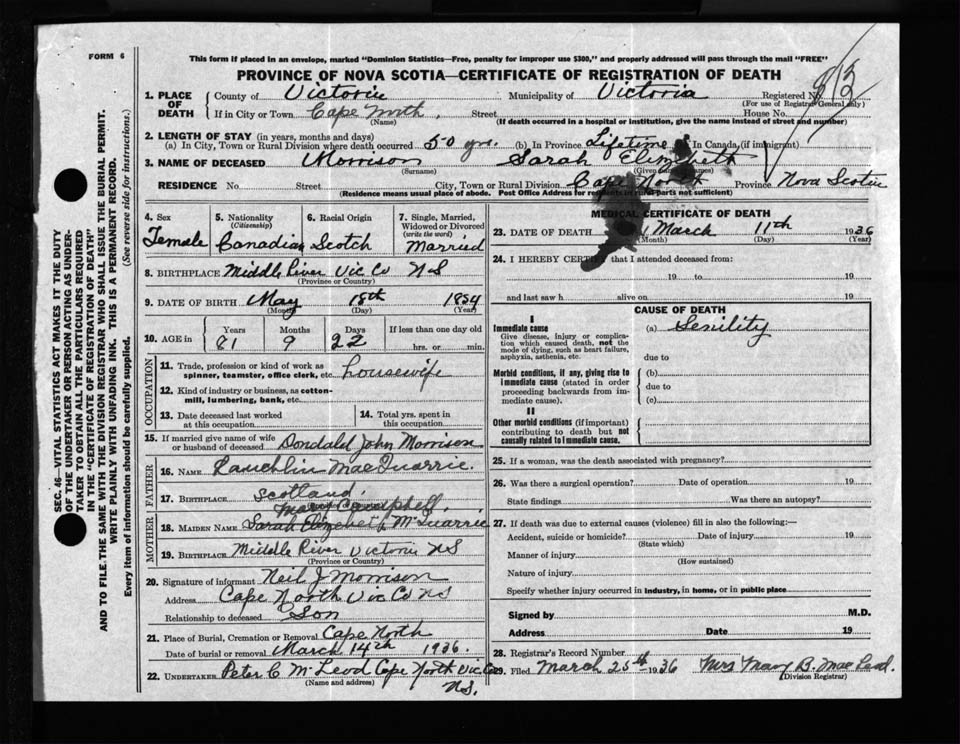 FORM 6
This form if placed in an envelope, marked "Dominion Statistics—Free, penalty for improper use $300," and properly addressed will pass through the mail "FREE"
PROVINCE OF NOVA SCOTIA—CERTIFICATE OF REGISTRATION OF DEATH
SEC. 46—VITAL STATISTICS ACT MAKES IT THE DUTY
OF THE UNDERTAKER OR PERSON ACTING AS UNDER-
TAKER TO OBTAIN ALL THE PARTICULARS REQUIRED
IN THE "CERTIFICATE OF REGISTRATION OF DEATH"
AND TO FILE THE SAME WITH THE DIVISION REGISTRAR WHO SHALL ISSUE THE BURIAL PERMIT.
WRITE PLAINLY WITH UNFADING INK. THIS IS A PERMANENT RECORD.
Every item of information should be carefully supplied. (See reverse side for instructions.)
1. PLACE OF DEATH County of Victoria Municipality of Victoria Registered No.
(For use of Registrar General only)
If in City or Town Cape North. Street House No.
(Name) (If death occurred in a hospital or institution, give the name instead of street and number)
2. LENGTH OF STAY (in years, months and days)
(a) In City, Town or Rural Division where death occurred 50 yrs. (b) In Province Lifetime In Canada (if immigrant)
3. NAME OF DECEASED Morrison Sarah Elizabeth
(Surname) (Given names)
RESIDENCE No. Street City, Town or Rural Division Cape North Province Nova Scotia
(Residence means usual place of abode. Post Office Address for residents in rural parts not sufficient)
4. Sex Female
5. Nationality (Citizenship) Canadian
6. Racial Origin Scotch
7. Single, Married, Widowed or Divorced (write the word) Married
8. BIRTHPLACE Middle River Vic Co N S
(Province or Country)
9. DATE OF BIRTH May 18th 1854
(Month) (Day) (Year)
10. AGE in Years Months Days If less than one day old
81 9 22 hrs. or min.
OCCUPATION
11. Trade, profession or kind of work as spinner, teamster, office clerk, etc. housewife
12. Kind of industry or business, as cotton-mill, lumbering, bank, etc.
13. Date deceased last worked at this occupation
14. Total yrs. spent in this occupation
15. If married give name of wife or husband of deceased Dondald John Morrison
FATHER
16. NAME Lauchlin MacQuarrie.
17. BIRTHPLACE Scotland.
MOTHER
Mary Campbell.
18. MAIDEN NAME Sarah Elizebeth McQuarrie
19. BIRTHPLACE Middle River Victoria NS
(Province or Country)
20. Signature of informant Neil J Morrison
Address Cape North Vic Co NS
Relationship to deceased Son
21. Place of Burial, Cremation or Removal Cape North
Date of burial or removal March 14th 1936.
22. UNDERTAKER Peter C McLeod Cape North Vic Co
N S.
(Name and address)
MEDICAL CERTIFICATE OF DEATH
23. DATE OF DEATH March 11th 1936
(Month) (Day) (Year)
24. I HEREBY CERTIFY that I attended deceased from:
19 to 19
and last saw h alive on 19
CAUSE OF DEATH
I
Immediate cause
Give disease, injury or complication which caused death, not the mode of dying, such as heart failure, asphyxia, asthenia, etc.
(a) Senility
due to
Morbid conditions, if any, giving rise to immediate cause (stated in order proceeding backwards from immediate cause).
(b)
due to
(c)
II
Other morbid conditions (if important) contributing to death but not causally related to immediate cause.
25. If a woman, was the death associated with pregnancy?
26. Was there a surgical operation? Date of operation 19
State findings Was there an autopsy?
27. If death was due to external causes (violence) fill in also the following:—
Accident, suicide or homicide? Date of injury 19
(State which)
Manner of injury
(How sustained)
Nature of injury
Specify whether injury occurred in industry, in home, or in public place
Signed by M.D.
Address Date 19
28. Registrar's Record Number
29. Filed March 25th 1936 Mrs Mary B. MacLeod.
(Division Registrar)